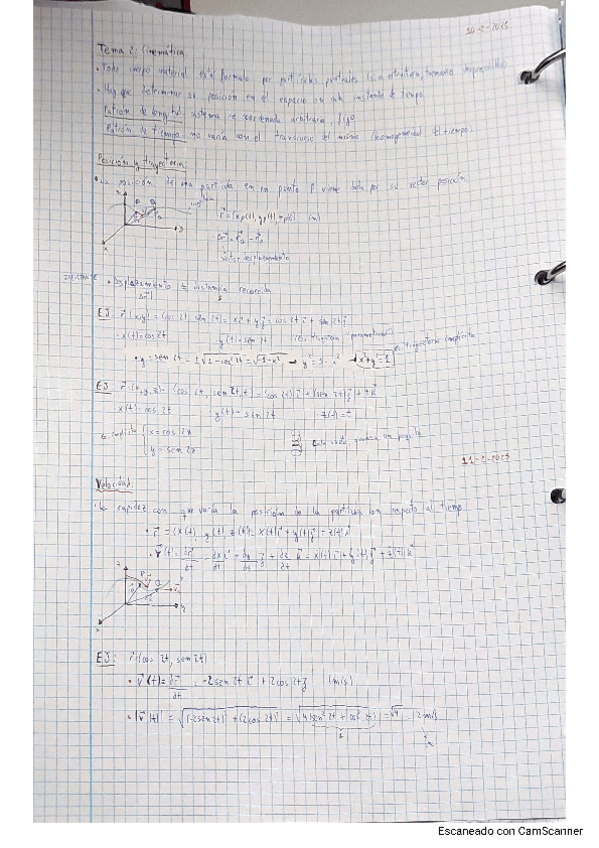 10-2-2023
Tema 2: Cinemática
• Todo cuerpo material está formado por partículas puntuales (sin estructura, tamaño
• Hay que determinar su posición en el espacio en cada instante de tiempo
Patrón de longitud: sistema de coordenada arbitraria, fijo
Patrón de tiempo: no varía con el transcurso del mismo (homogeneidad del tiempo)
Posición y trayectoria:
• La posición de una partícula en un punto P viene dada por su vector posición
(m)
vector desplazamiento
• Desplazamiento ≠ distancia recorrida
EJ: r⃗(x,y) = (cos 2t, sen 2t) = xi⃗ + yj⃗ = cos 2t i⃗ + sen 2t j⃗
• x(t) = cos 2t y(t) = sen 2t
• y = sen 2t = ±√1-cos²2t = √1-x² → y² = 1-x² → x²+y²=1 trayectoria implícita
EJ r⃗(x,y,z) = (cos 2t, sen 2t, t) = (cos 2t) i⃗ + (sen 2t) j⃗ + t k⃗
x(t) = cos 2t y(t) = sen 2t z(t) = t
x = cos 2z
y = sen 2z
11-2-2023
Velocidad:
• La rapidez con que varía la posición de la partícula con respecto al tiempo
• r⃗ = (x(t), y(t), z(t)) = x(t) i⃗ + y(t) j⃗ + z(t) k⃗
• v⃗(t) = dr⃗/dt = dx/dt i⃗ + dy/dt j⃗ + dz/dt k⃗ = x(t) i⃗ + y(t) j⃗ + z(t) k⃗
EJ: r⃗(cos 2t, sen 2t)
• v⃗(t) = dr⃗/dt = -2sen 2t i⃗ + 2cos 2t j⃗ (m/s)
• |v⃗(t)| = √(-2sen 2t)² + (2cos 2t)² = √4(sen² 2t + cos² 2t) = √4 = 2 m/s
1
Escaneado con CamScanner